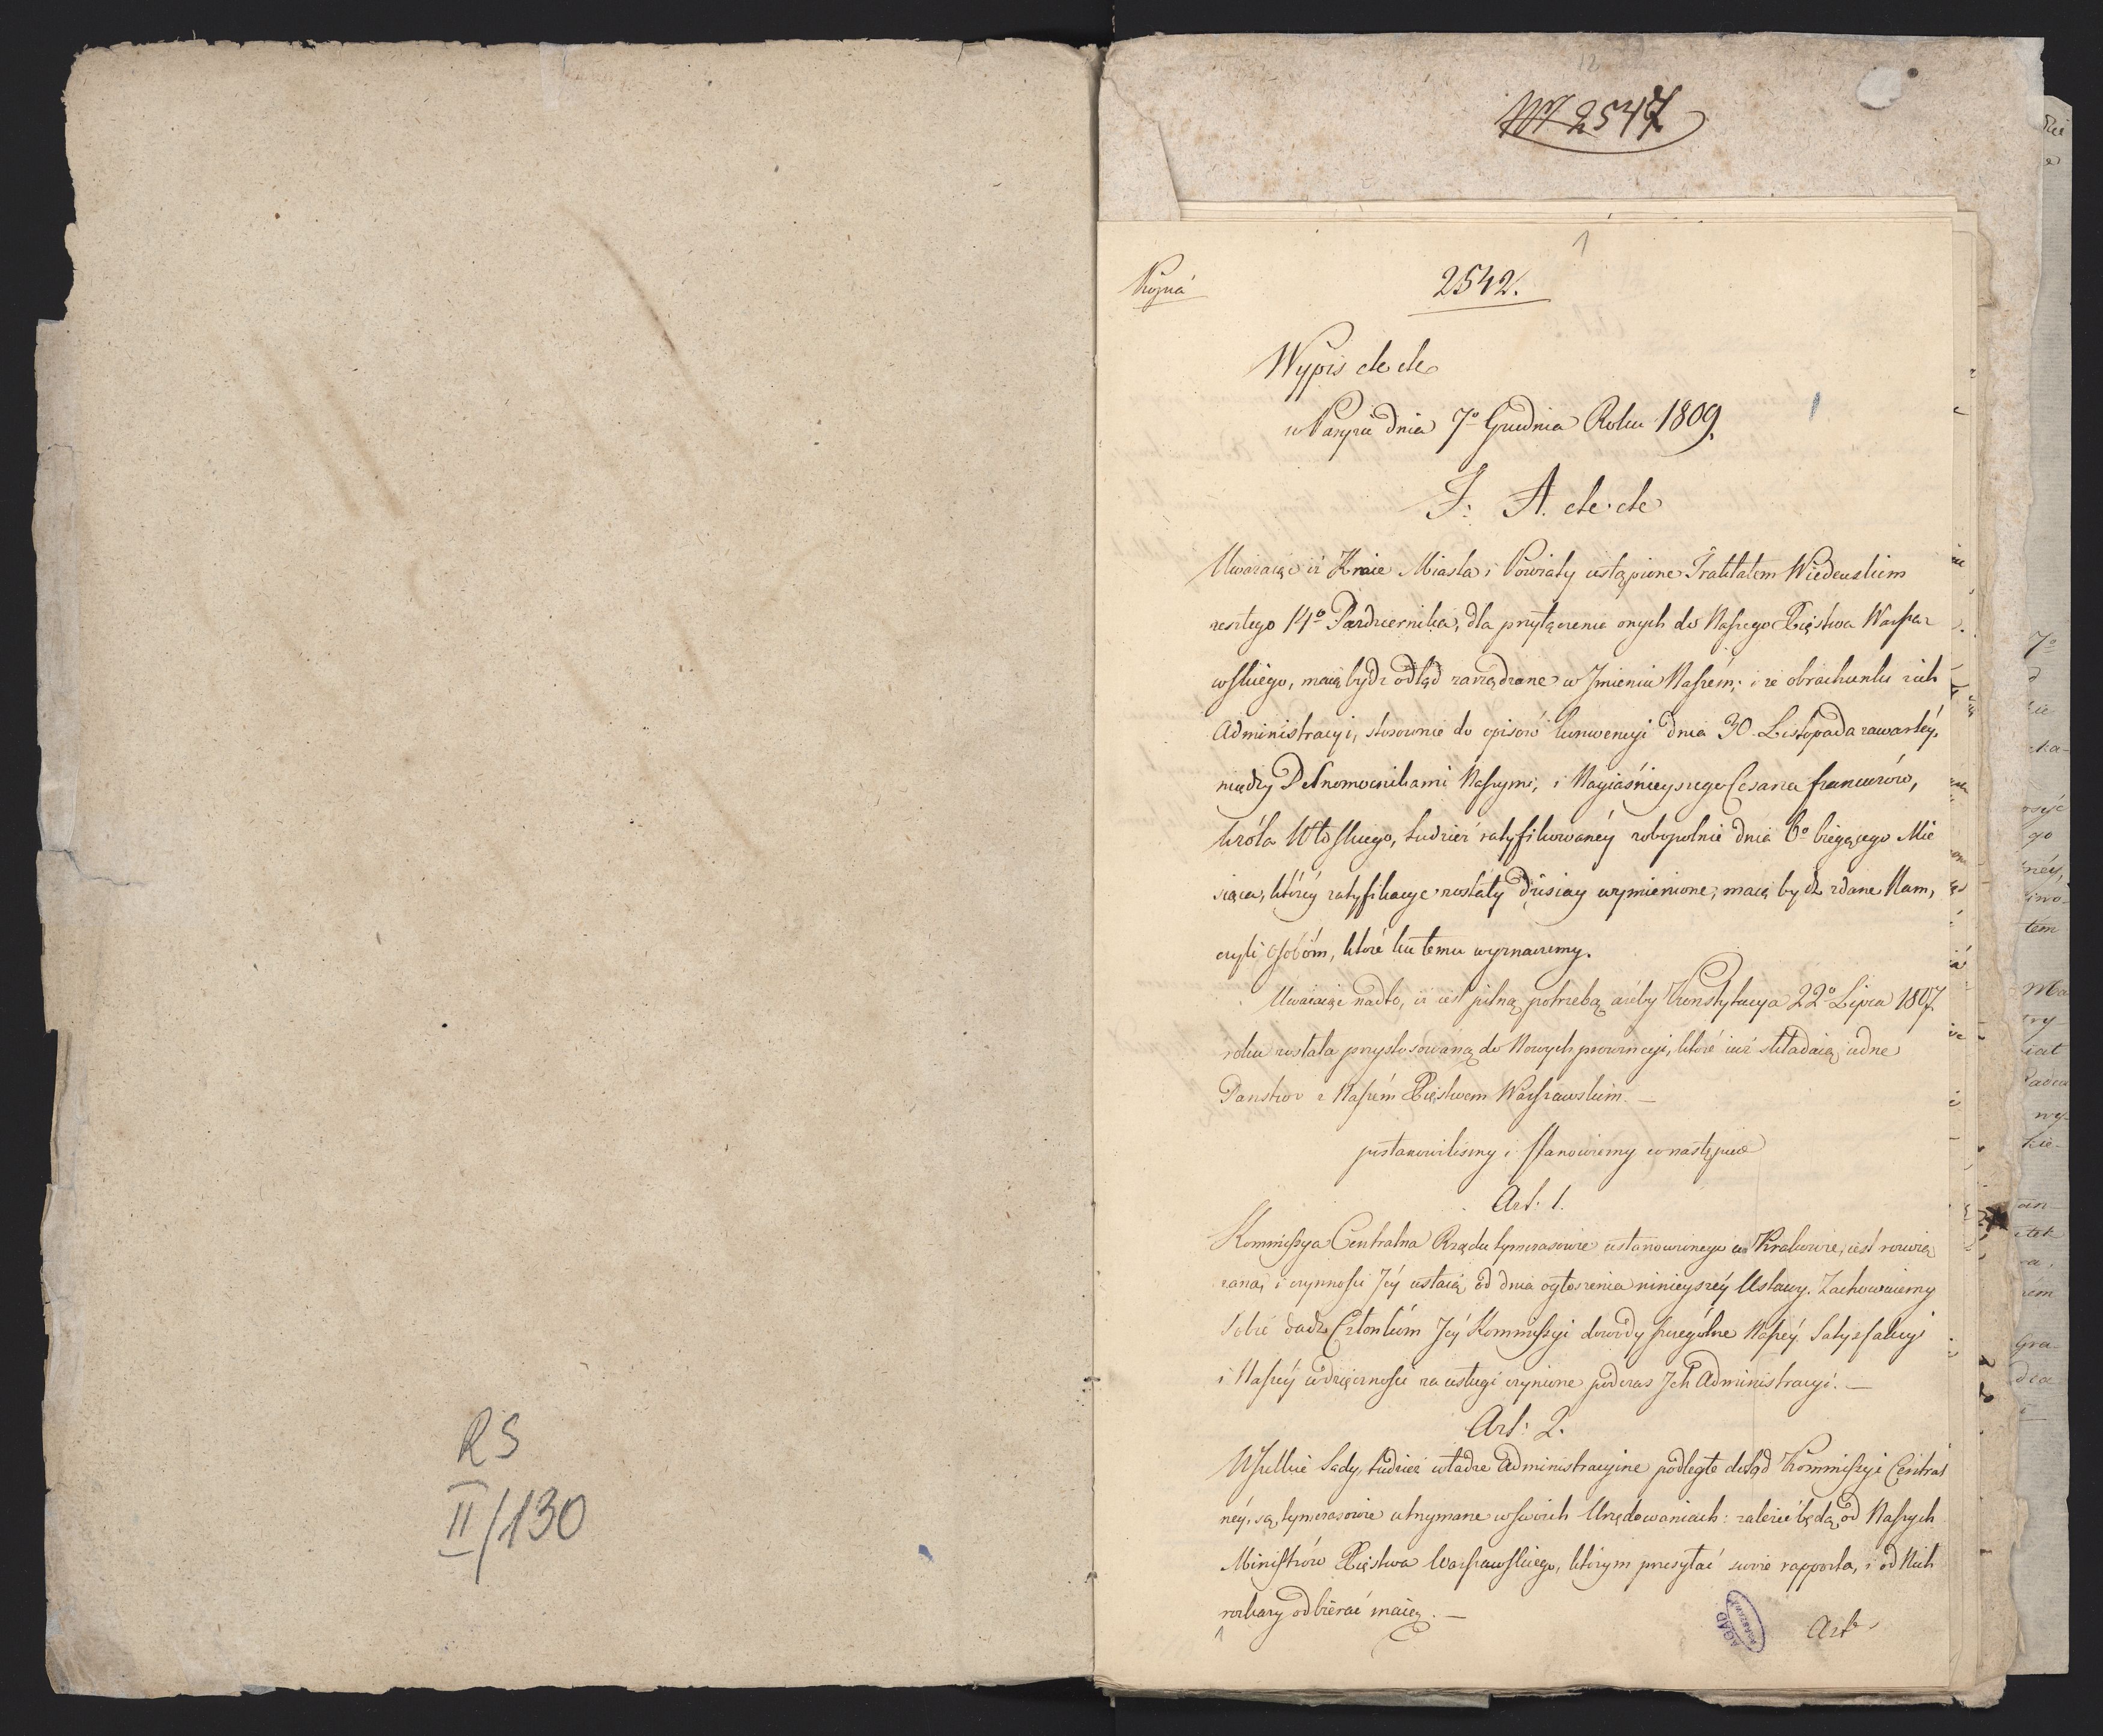 RS
II/130
12
N 2547
1
2542.
Wypis etc etc
w Paryżu dnia 7º Grudnia Roku 1809.
F: A. etc. etc
Uważaiąc iż Kraie Miasta i Powiaty ustąpione Traktatem Wiedeńskim
zeszłego 14º Października, dla przyłączenia onych do Naszego Xięstwa Warsza-
wskiego, maią bydź odtąd zarządzane w Imieniu Naszém; i że obrachunki z ich
Administracyi, stosownie do opisów konwencyi dnia 30. Listopada zawartéy,
między Pełnomocnikami Naszymi, i Nayiaśnieyszego Cesarza francuzów,
króla Włoskiego, tudzież ratyfikowanéy robopolnie dnia 6º bieżącego Mie
siąca, któréy ratyfikacye zostały dzisiay wymienione; maią bydź zdane Nam,
czyli osobóm, które ku temu wyznaczemy.
Uważaiąc nadto, iż iest pilną potrzebą ażeby Konstytucya 22º Lipca 1807
roku została przystosowaną do Nowych prowincyi, które iuż składaią iedne
Panstwo z Naszém Xięstwem Warszawskim. —
postanowilismy i stanowiemy co następuie
Art: 1.
Kommissya Centralna Rządu tymczasowie ustanowionego w Krakowie, iest rozwią
zaną, i czynności Jéy ustaią od dnia ogłoszenia ninieyszéy Ustawy. Zachowuiemy
Sobie dadź Członkóm Jéy Kommissyi dowody szczególne Naszéy Satysfakcyi
i Naszéy wdzięczności za usługi czynione podczas Jch Administracyi. —
Art: 2.
Wszelkie Sądy, tudzież władze Administracyine podległe dotąd Kommissyi Central
néy, są tymczasowie utrzymane w swoich Urzędowaniach: zależeć będą od Naszych
Ministrów Xięstwa Warszawskiego, którym przesyłać swoie rapporta, i od Nich
rozkazy odbierać maią. —
Art
AGAD
WARSZAWA